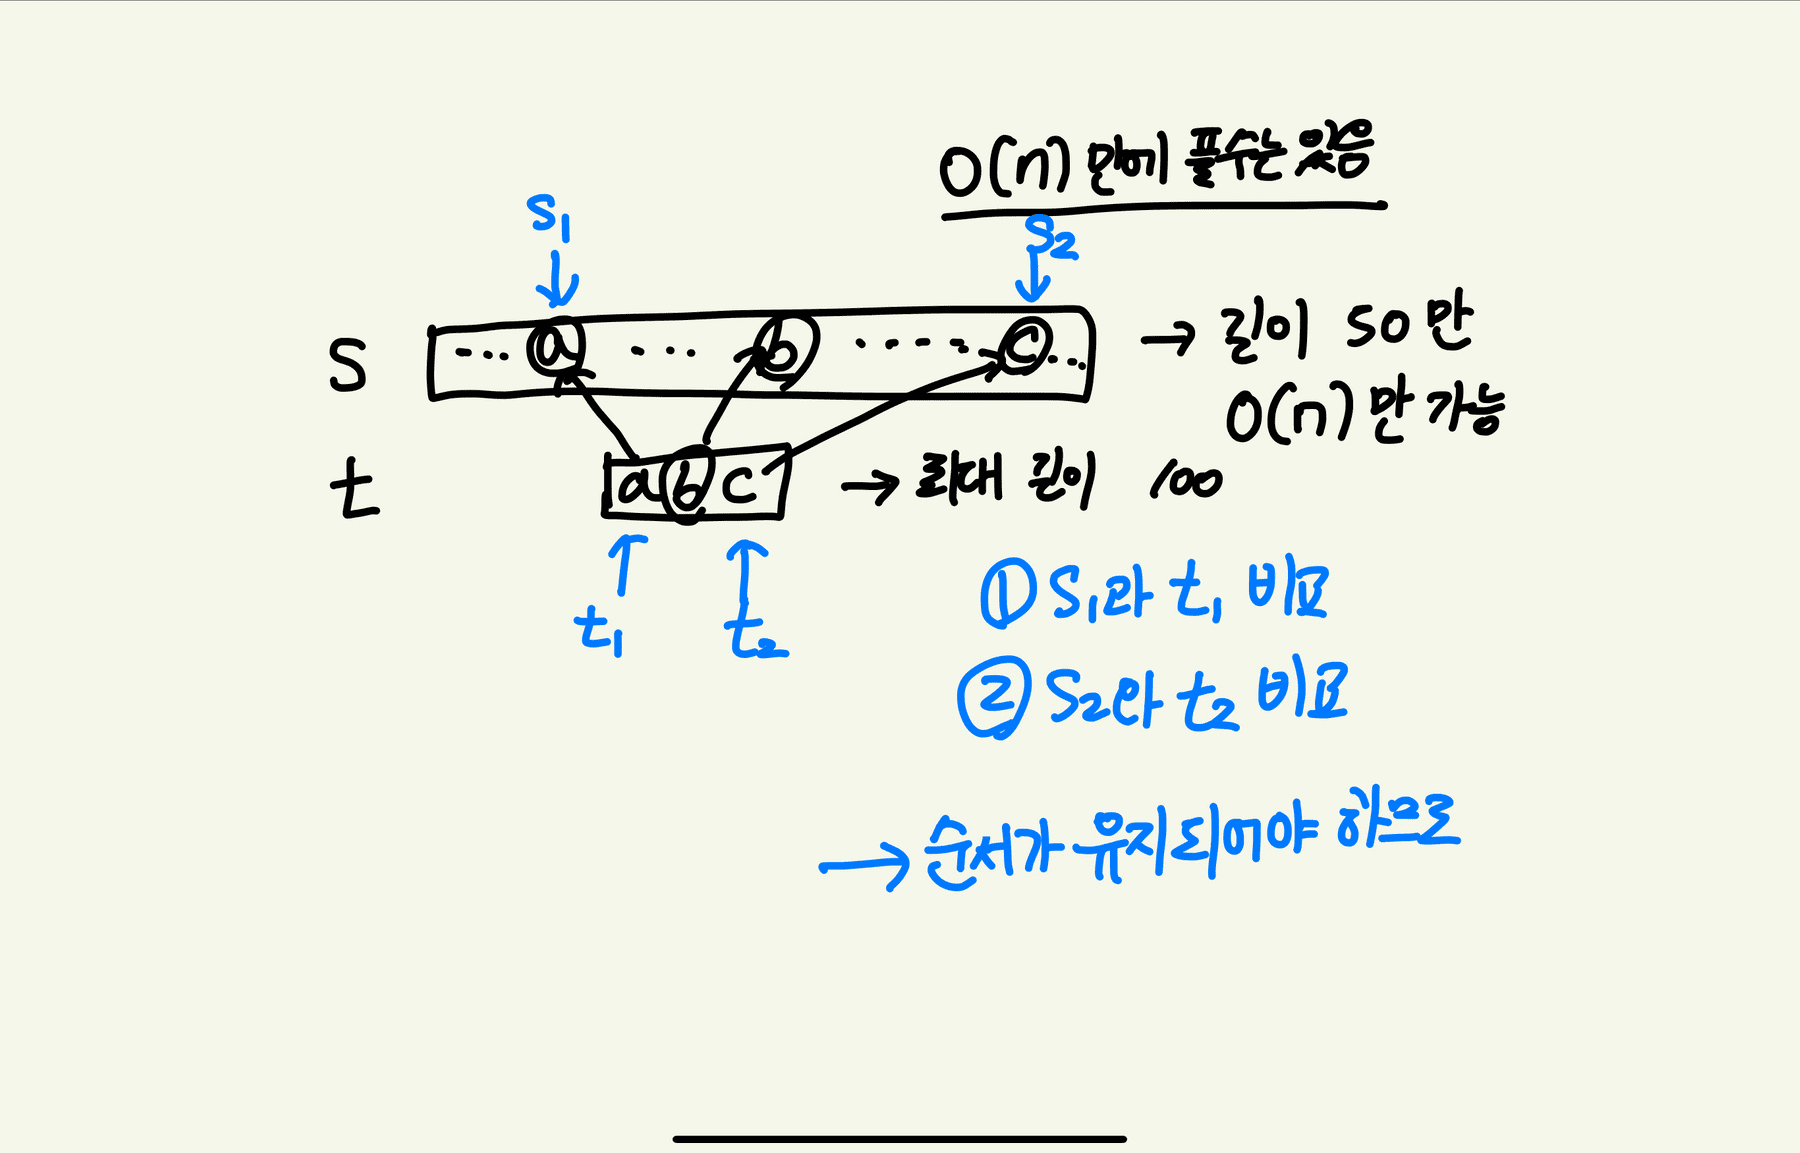 O(n) 만에 풀수는 있음
S₁
S₂
S ... a ... b ..... c ... → 길이 50만
O(n)만 가능
t a b c → 최대 길이 100
t₁ t₂
① S₁과 t₁ 비교
② S₂와 t₂ 비교
→ 순서가 유지되어야 하므로